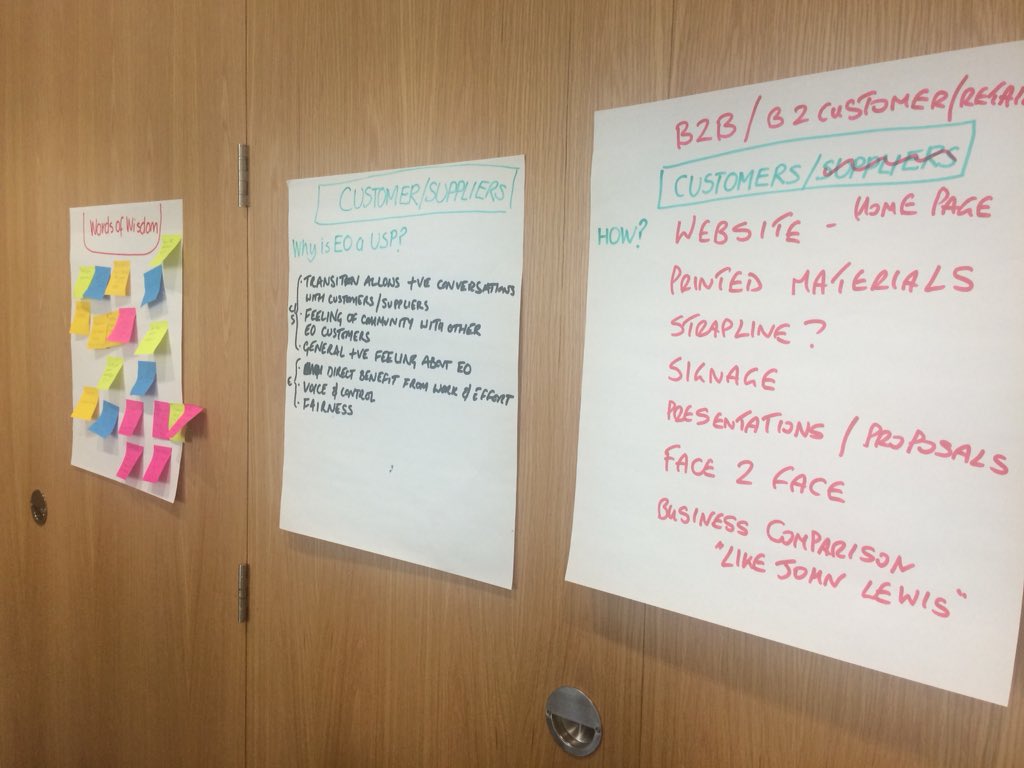 Words of Wisdom
CUSTOMER/SUPPLIERS
Why is EO a USP?
C/S
· TRANSITION ALLOWS +VE CONVERSATIONS
WITH CUSTOMERS/SUPPLIERS
· FEELING OF COMMUNITY WITH OTHER
EO CUSTOMERS
· GENERAL +VE FEELING ABOUT EO
E
· DIRECT BENEFIT FROM WORK & EFFORT
· VOICE & CONTROL
· FAIRNESS
B2B / B2CUSTOMER/RETAI
CUSTOMERS/SUPPLIERS
HOW? WEBSITE - HOME PAGE
PRINTED MATERIALS
STRAPLINE?
SIGNAGE
PRESENTATIONS / PROPOSALS
FACE 2 FACE
BUSINESS COMPARISON
"LIKE JOHN LEWIS"